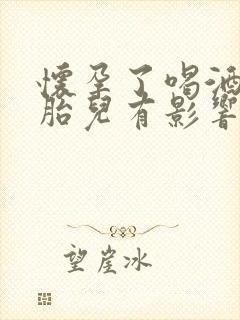 懷孕了喝酒
胎兒有影響
望崖冰